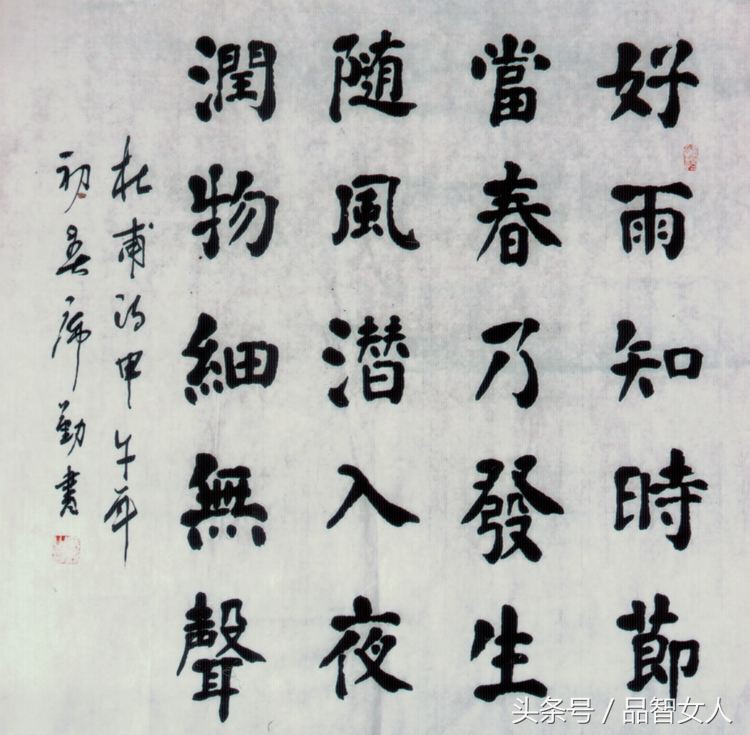 好雨知時節
當春乃發生
随風潜入夜
潤物細無聲
杜甫詩甲午年
初春席勤書
头条号 / 品智女人